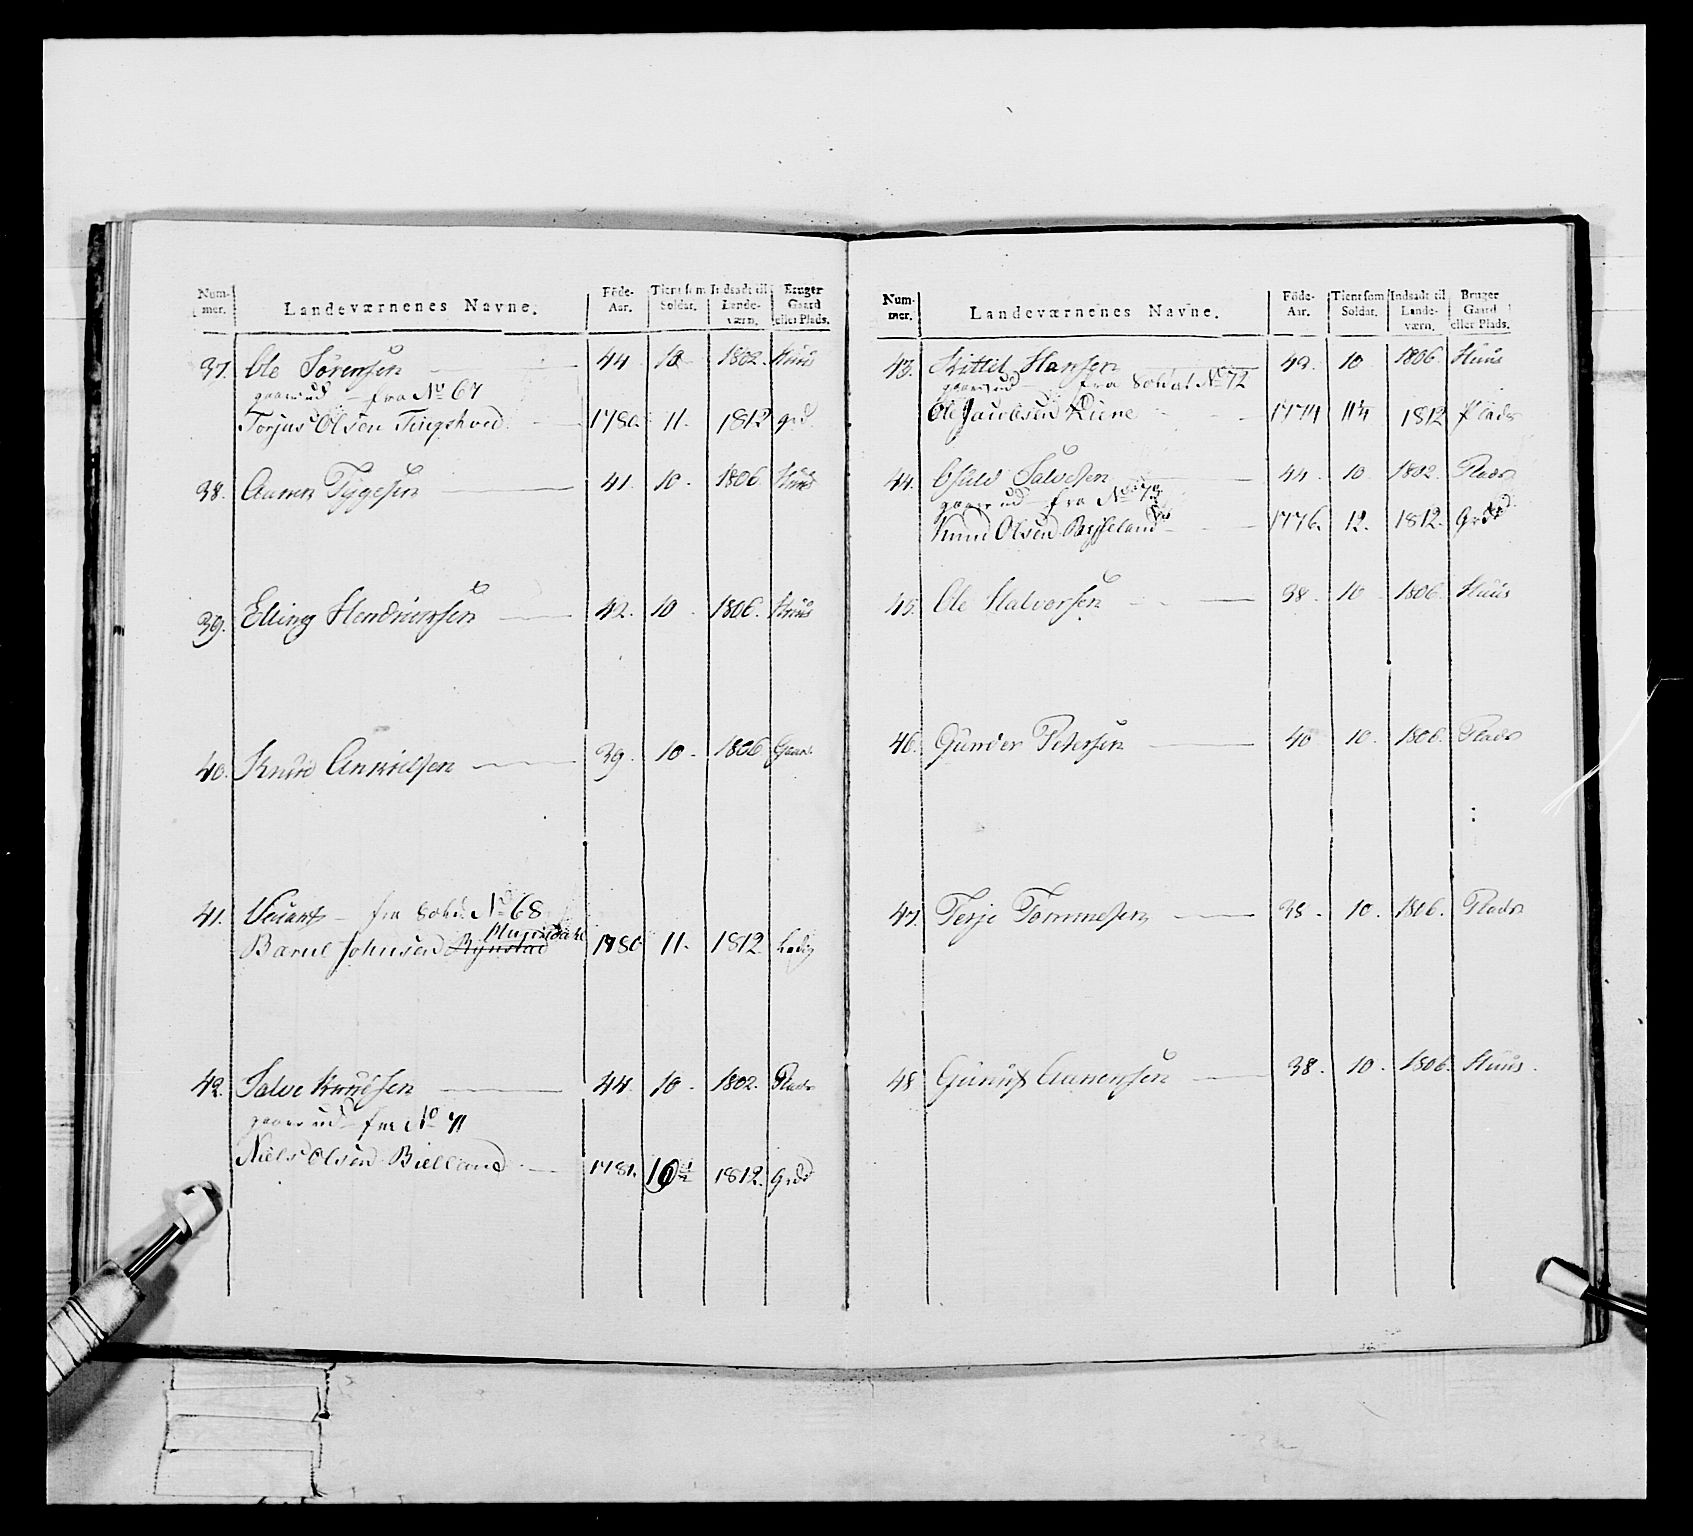 Num-mer. Landeværnenes Navne. Föde-Aar. Tient som Soldat. Indsadt til Lande-værn. Bruger Gaard eller Plads.
37. Ole Sörensen 44 10 1802. Huus
gaaer ud fra No 67
Torjus Olsen Tingstved 1780. 11. 1812 grd
38. Aanen Tygesen 41. 10. 1806. Huus
39. Elling Hendricksen 42. 10 1806. Huus
40. Knud Ankielsen 39. 10 1806 Gaard
41. Vacant fra Sold. No 68
Barul Johnsen 1780 11. 1812 Ledig
42. Salve Knudsen 44. 10 1802. Plads
gaaer ud fra No 71
Niels Olsen Bielland 1781. 10 1812. grd
Num-mer. Landeværnenes Navne. Föde-Aar. Tient som Soldat. Indsadt til Lande-værn. Bruger Gaard eller Plads.
43. Kittel Hansen 42. 10 1806. Huus
gaaer ud fra Soldat No 72
Ole Jacobsen 1774 11 1812 Plads
44. Osuld Salvesen 44. 10 1802. Plads
gaaer ud fra No 73
Knud Olsen 1776. 12. 1812. Grd
45. Ole Halvorsen 38. 10 1806. Huus
46. Gunder Petersen 40 10. 1806. Plads
47. Terje Tommesen 38. 10. 1806. Plads
48 Gunuf Aanensen 38. 10. 1806. Huus.